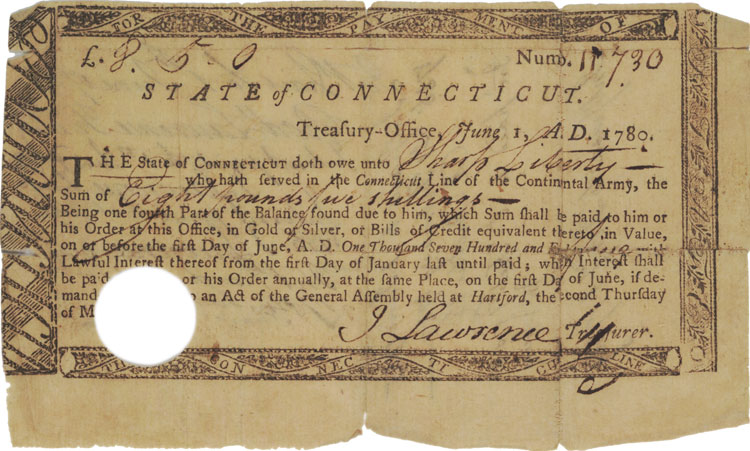 FOR THE PAYMENT OF
£. 8. 5. 0 Numb. 11730
STATE of CONNECTICUT.
Treasury-Office, June 1, A. D. 1780.
THE State of CONNECTICUT doth owe unto Sharp Liberty
who hath served in the Connecticut Line of the Continental Army, the
Sum of Eight pounds five shillings
Being one fourth Part of the Balance found due to him, which Sum shall be paid to him or
his Order at this Office, in Gold or Silver, or Bills of Credit equivalent thereto in Value,
on or before the first Day of June, A. D. One Thousand Seven Hundred and
Lawful Interest thereof from the first Day of January last until paid; Interest shall
be paid or his Order annually, at the same Place, on the first Day of June, if de-
mand o an Act of the General Assembly held at Hartford, the second Thursday
of M
J Lawrence Treasurer.
THE CONNECTICUT LINE